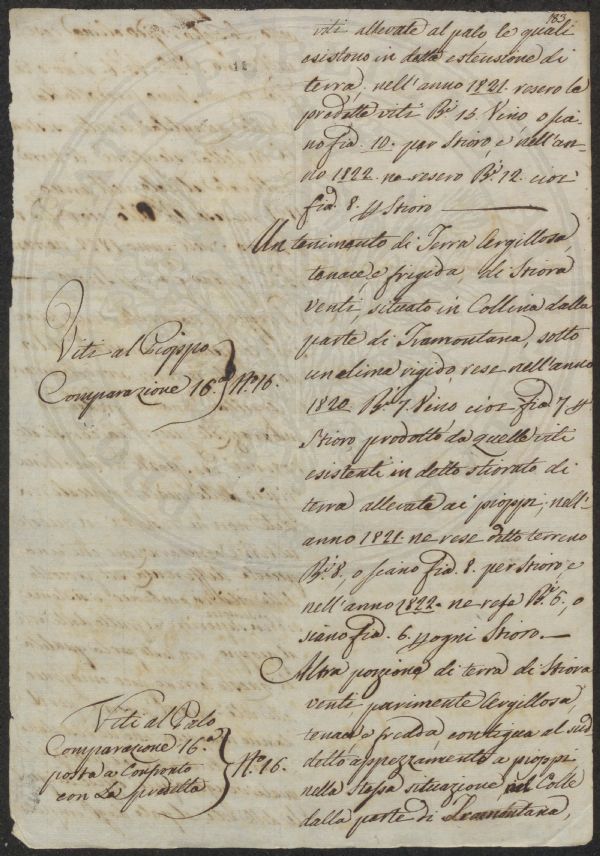 183.
viti allevate al palo le quali
esistono in detta estensione di
terra, nell'anno 1821. resero le
predette viti B.i 15. Vino, o sia-
no fia. 10. per Stioro, e nell'an-
no 1822. ne resero B.i 12. cioè
fia. 8. p Stioro
Un tenimento di Terra Argillosa,
tenace, e frigida, di Stiora
venti, situato in Collina dalla
parte di Tramontana, sotto
un clima rigido, rese nell'anno
1820. B.i 7. Vino cioè fia. 7 p
Stioro prodotto da quelle viti
esistenti in detto stiorato di
terra allevate ai pioppi; nell'
anno 1821. ne rese detto terreno
B.i 8. o siano fia. 8. per Stioro, e
nell'anno 1822. ne rese B.i 6., o
siano fia. 6. p ogni Stioro.
Viti al Pioppo
Comparazione 16.a N.o 16.
Altra porzione di terra di Stiora
venti parimente Argillosa,
tenace, e fredda, contigua al sud
detto appezzamento a pioppi
nella stessa situazione nel Colle
dalla parte di Tramontana,
Viti al Palo
Comparazione 16.a
posta a Confronto
con La predetta
N.o 16.